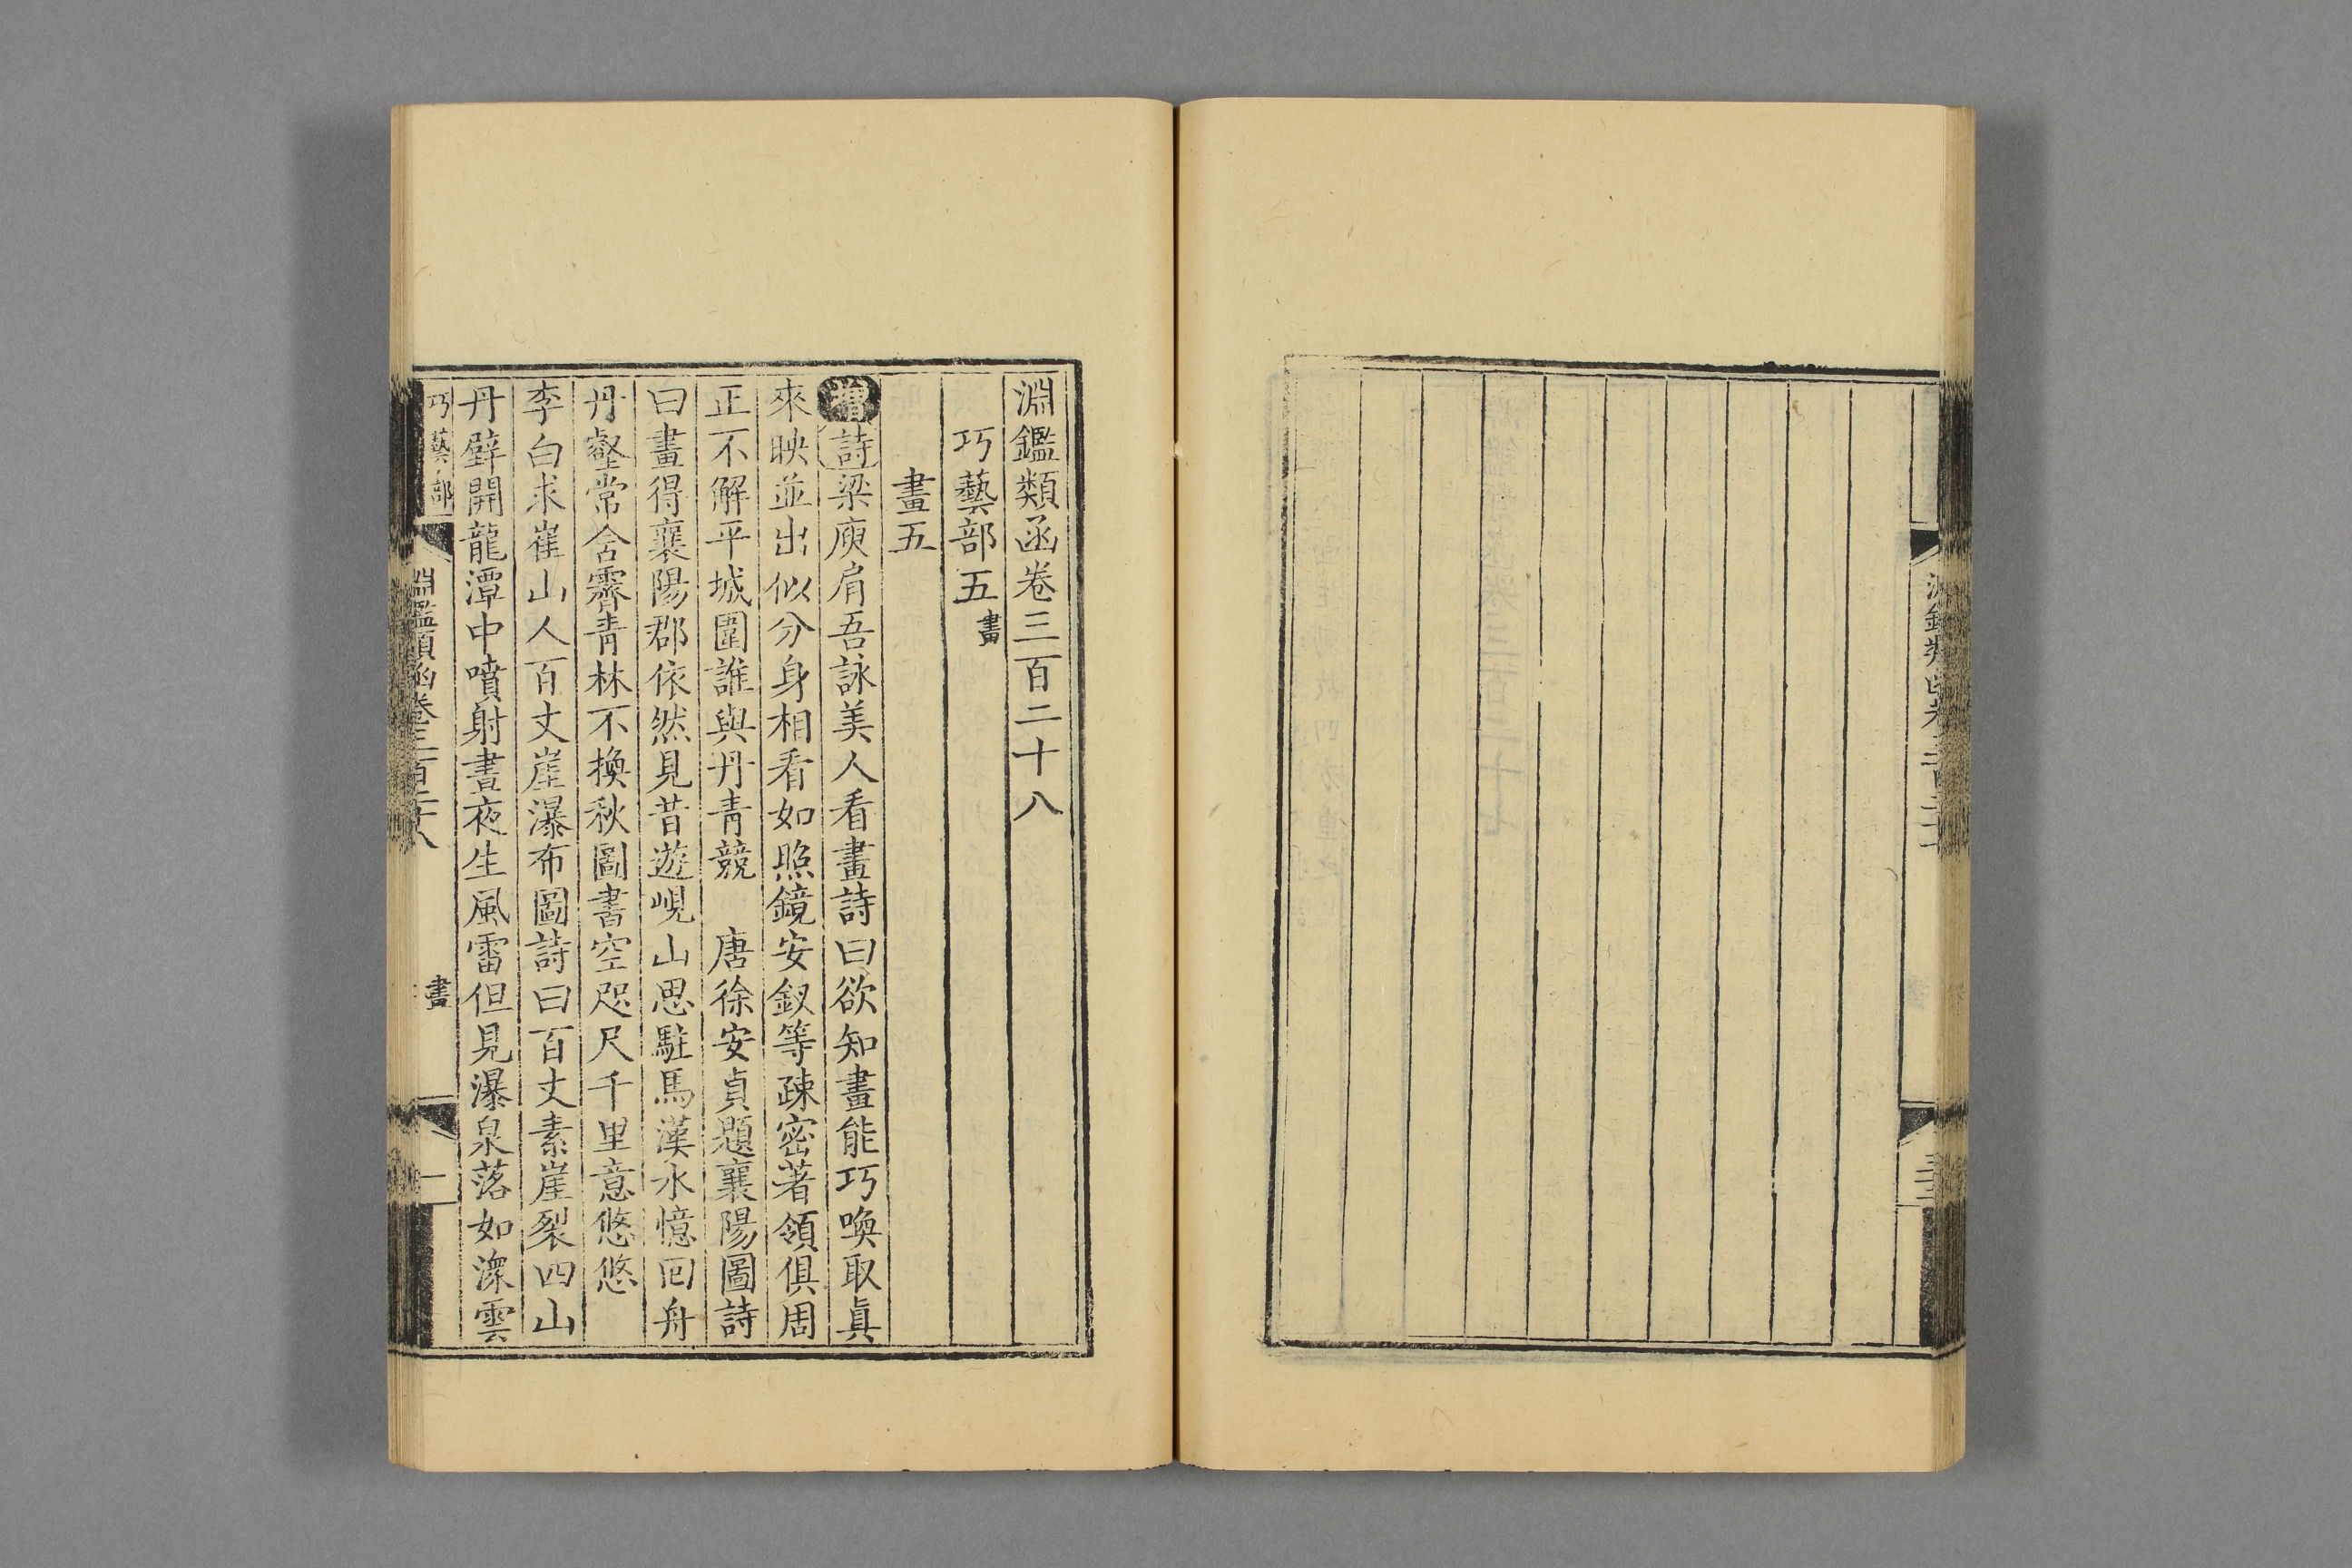 淵鑑類函卷三百二十八
巧藝部五畫
畫五
增詩梁庾肩吾詠美人看畫詩曰欲知畫能巧喚取眞
來映並出似分身相看如照鏡安釵等疎密著領俱周
正不解平城圍誰與丹青競　唐徐安貞題襄陽圖詩
曰畫得襄陽郡依然見昔遊峴山思駐馬漢水憶囘舟
丹壑常含霽青林不換秋圖書空咫尺千里意悠悠
李白求崔山人百丈崖瀑布圖詩曰百丈素崖裂四山
丹壁開龍潭中噴射晝夜生風雷但見瀑泉落如潨雲
巧藝部 淵鑑類函卷三百二十八 畫 一